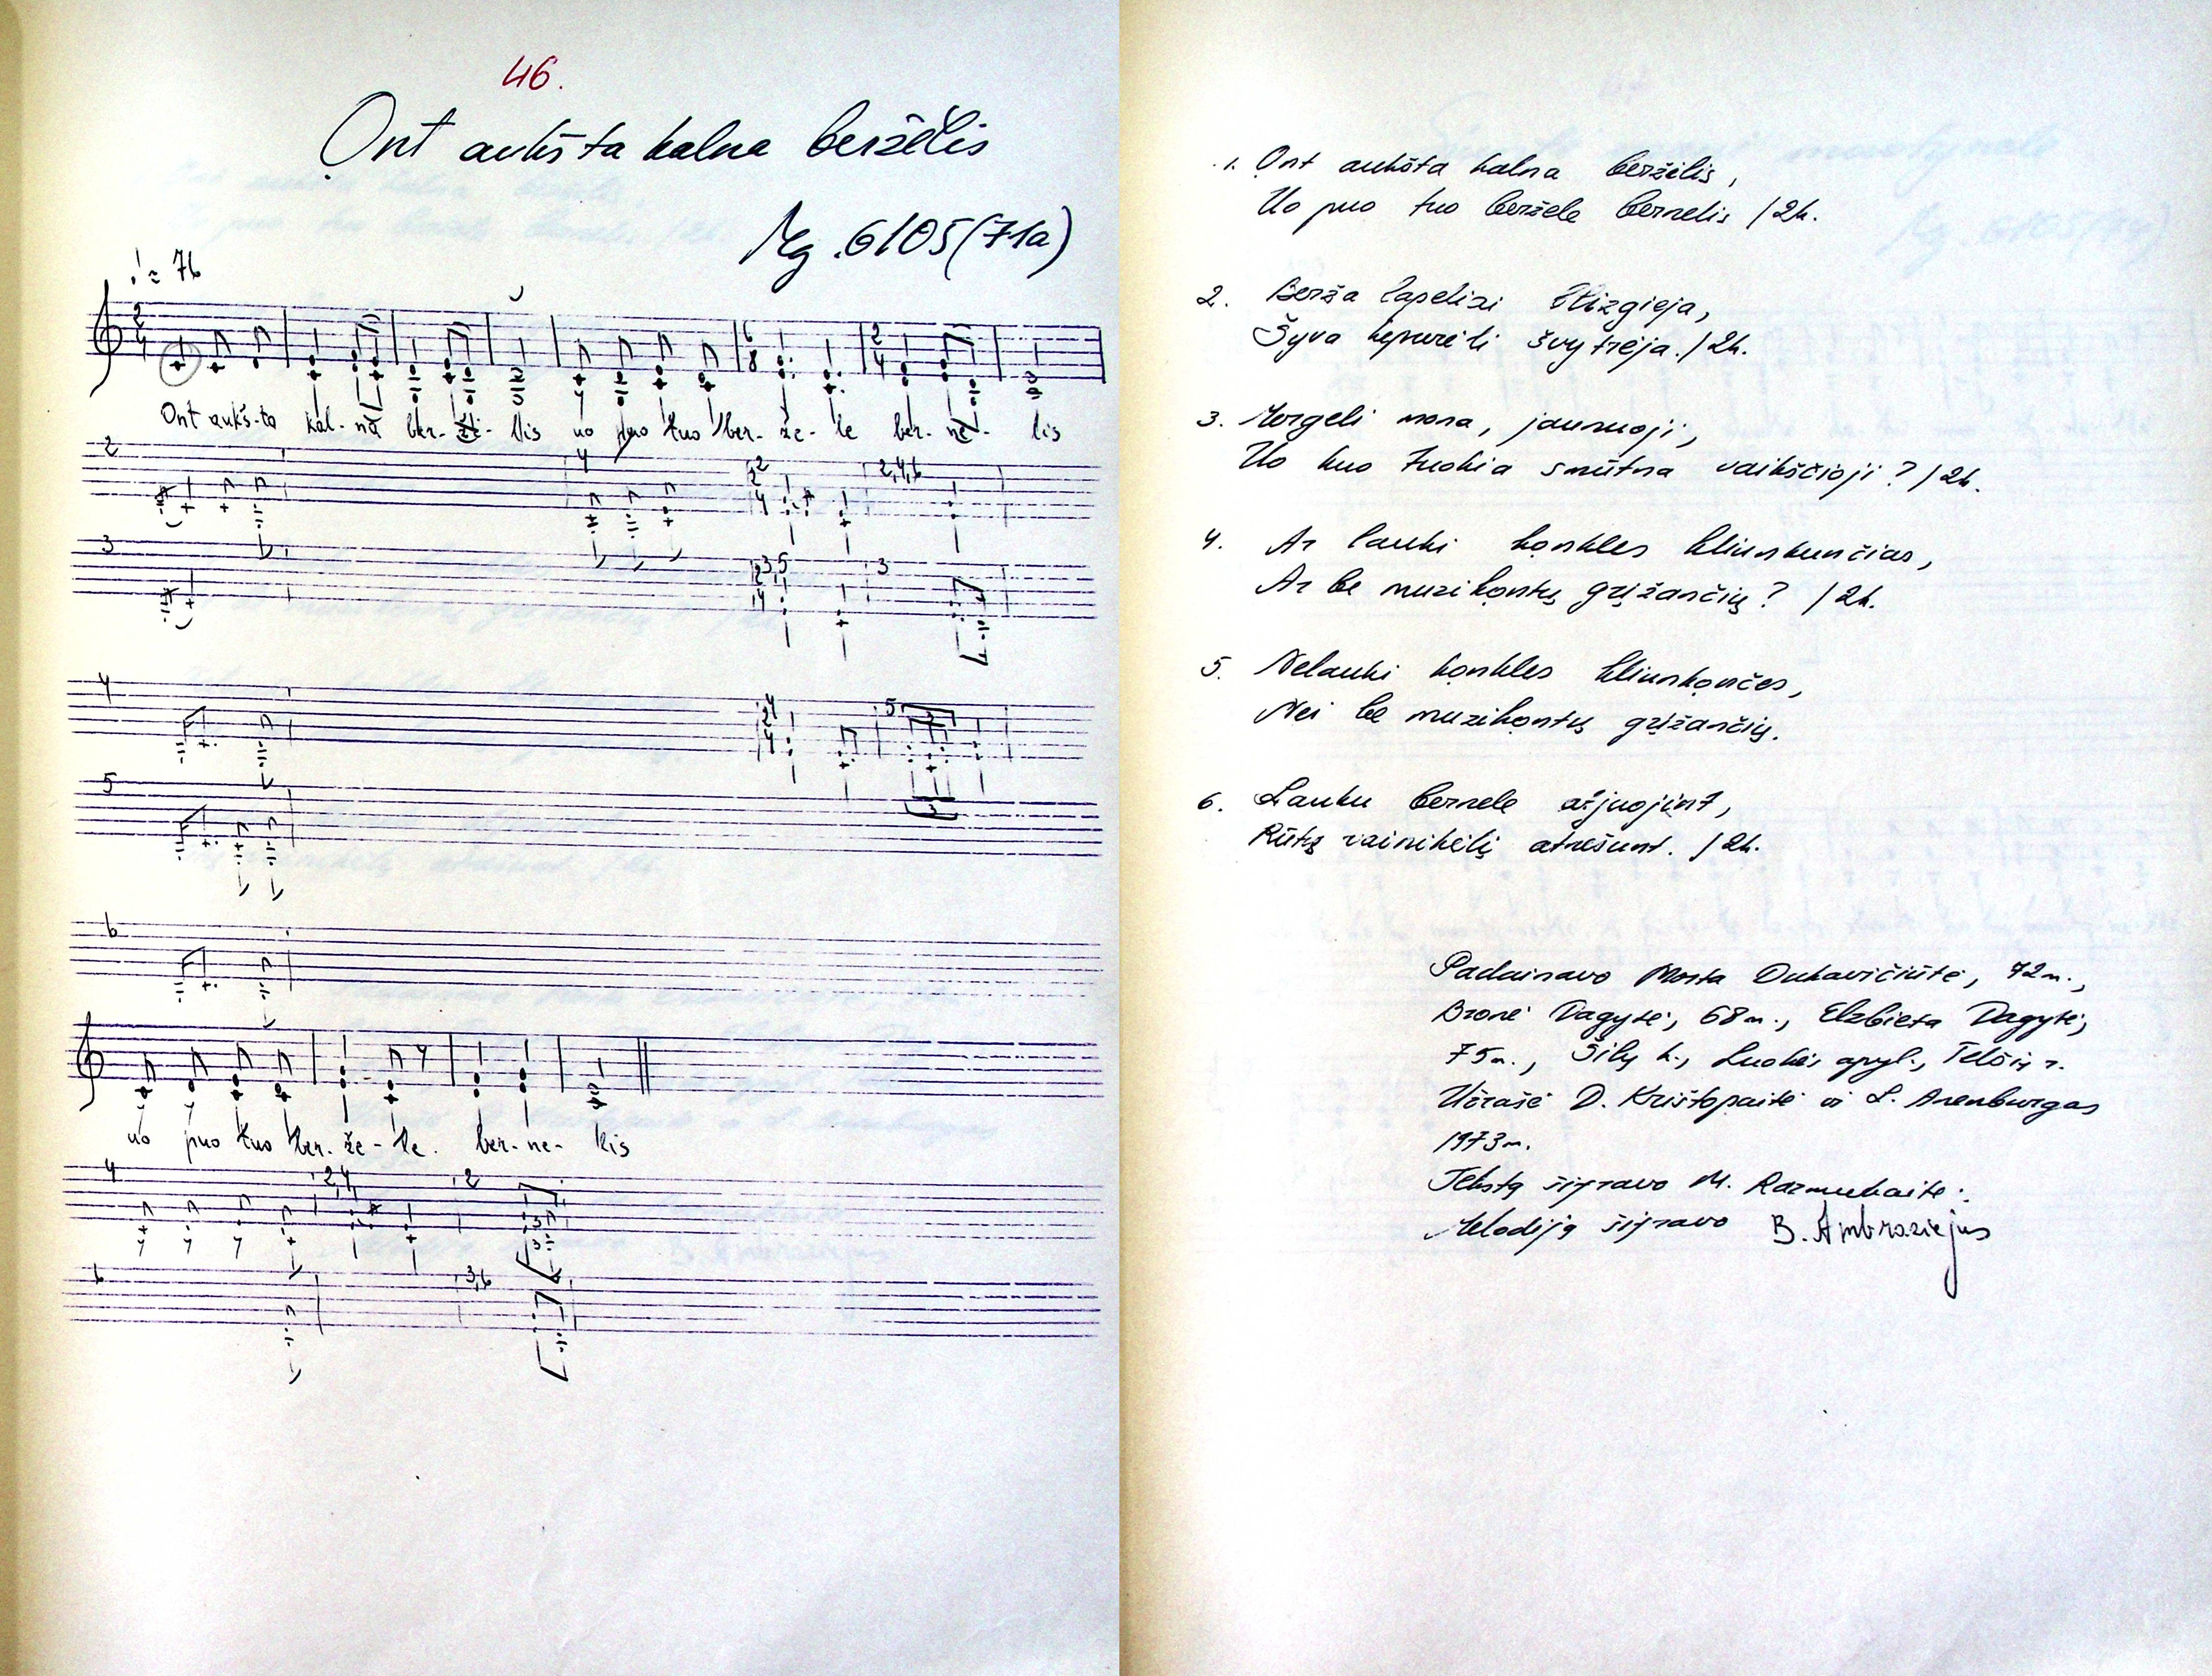 46.
Ont aukšta kalna berželis
Mg. 6105 (71a)
♩ = 76
Ont aukš-ta kal-na ber-že-lis uo puo tuo ber-že-le ber-ne-lis
2 4 2 2,4,6
3 3,5 3
4 4 5
5
6
uo puo tuo ber-že-le ber-ne-lis
4 2,4 2
6 3,6
1. Ont aukšta kalna berželis,
Uo puo tuo beržele bernelis /2k.
2. Berža lapeliai blizgieja,
Šyva kepurėli švytrėja. /2k.
3. Mergeli mona, jaunuoji,
Uo kuo tuokia smūtna vaikščioji? /2k.
4. Ar lauki konkles kliunkunčias,
Ar be muzikontų grįžančių? /2k.
5. Nelauki konkles kliunkončes,
Nei be muzikontų grįžančių.
6. Lauku bernele atjuojint,
Rūtų vainikėlį atnešunt. /2k.
Padainavo Morta Dukavičiūtė, 72 m.,
Bronė Dagytė, 68 m., Elzbieta Dagytė,
75 m., Šilų k., Luokės apyl., Telšių r.
Užrašė D. Krištopaitė ir L. Arenburgas
1973 m.
Tekstą išifravo M. Razmukaitė.
Melodiją išifravo B. Ambraziejus